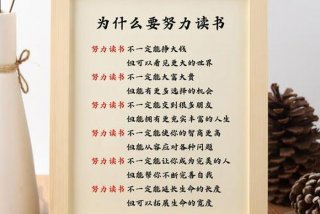 为什么要努力读书
努力读书 不一定能挣大钱
但可以看见更大的世界
努力读书 不一定能大富大贵
但能有更多选择的机会
努力读书 不一定能交到很多朋友
但能拥有更充实丰富的人生
努力读书 不一定能使你的智商更高
但能从容应对各种问题
努力读书 不一定能让你成为完美的人
但能帮你不断完善自我
努力读书 不一定能延长生命的长度
但可以拓展生命的宽度